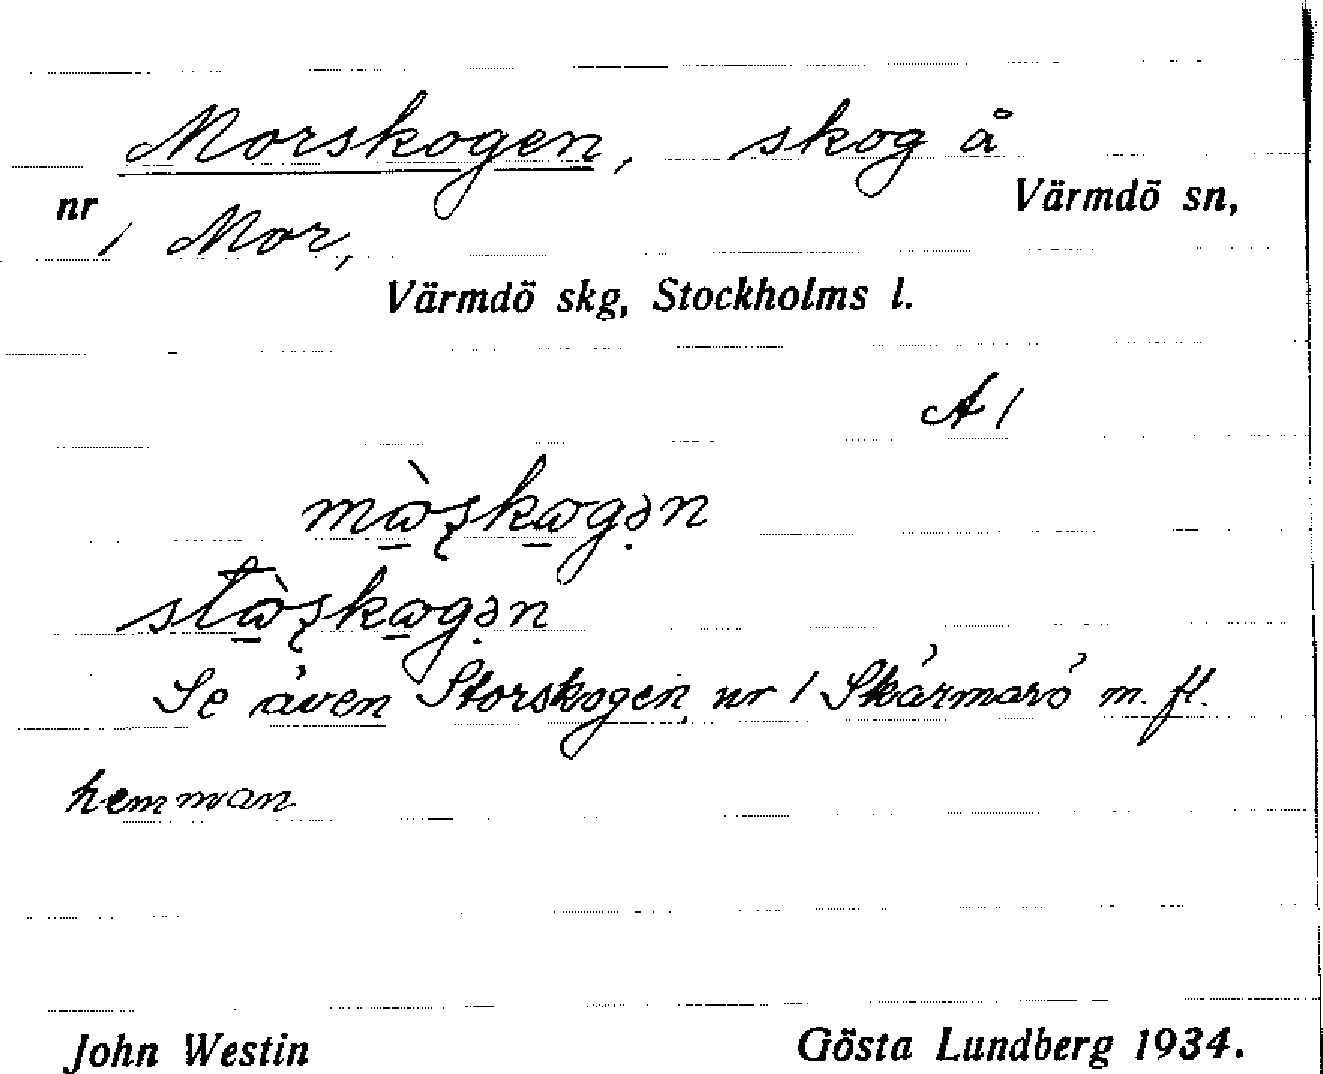 Morskogen, skog å
nr 1 Mor, Värmdö sn,
Värmdö skg, Stockholms l.
A 1
mɷ̀ʂkɷgə̣n
stɷ̀ʂkɷgə̣n
Se även Storskogen nr 1 Skärmarö m. fl.
hemman
John Westin Gösta Lundberg 1934.